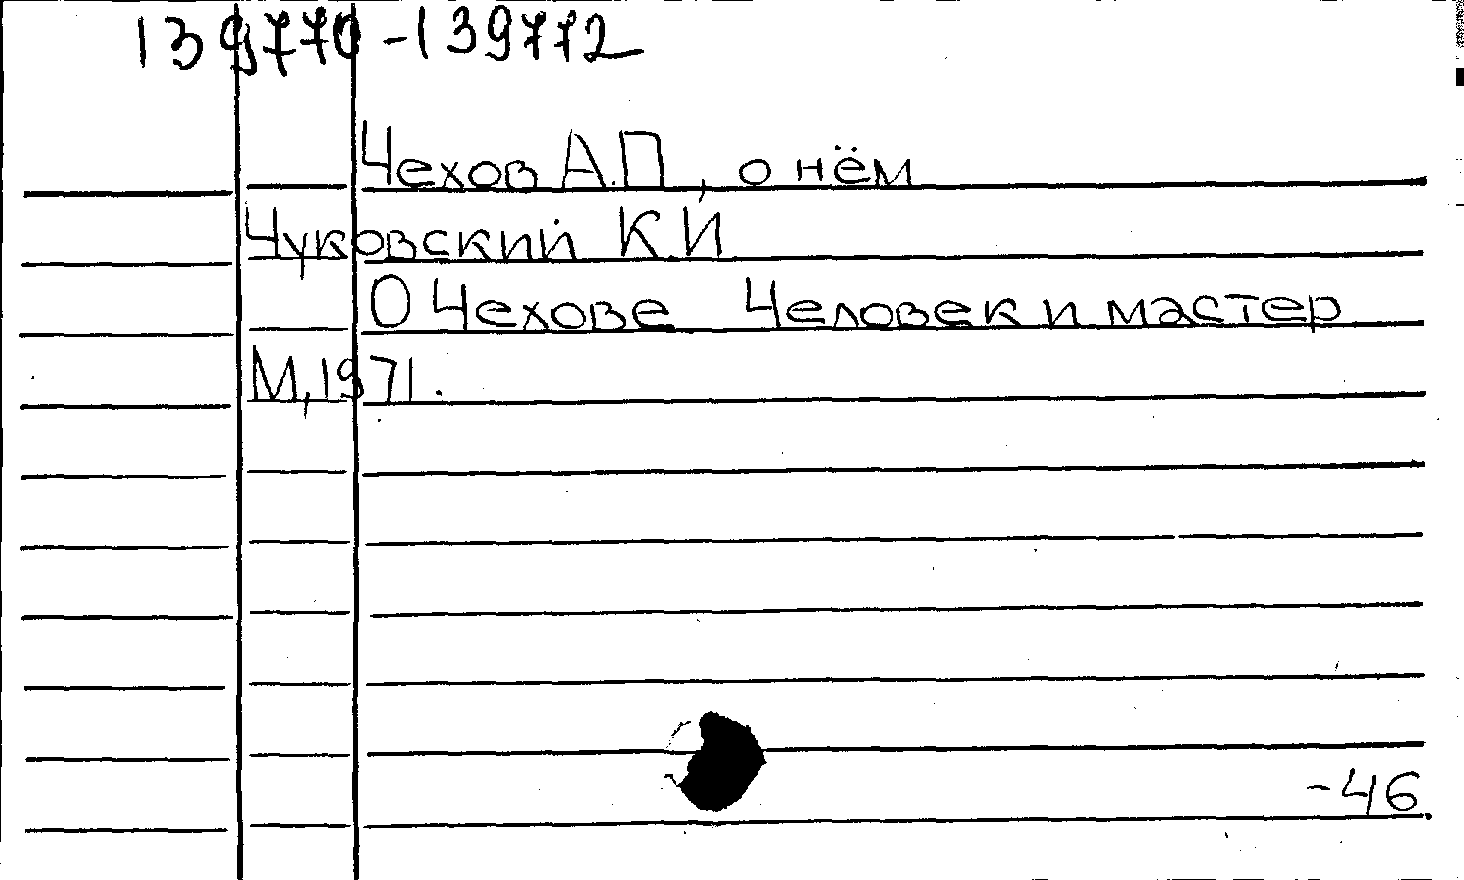 139770-139772
Чехов А.П, о нём
Чуковский К.И
О Чехове Человек и мастер
М, 1971.
-46